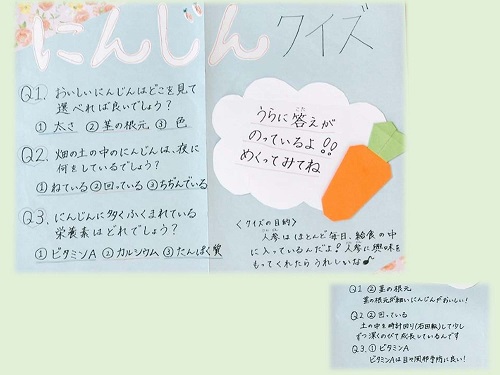 にんじんクイズ
Q1. おいしいにんじんはどこを見て
選べれば良いでしょう？
① 太さ ② 茎の根元 ③ 色
Q2. 畑の土の中のにんじんは、夜に
何をしているでしょう？
① ねている ② 回っている ③ ちぢんでいる
Q3. にんじんに多くふくまれている
栄養素はどれでしょう？
① ビタミンA ② カルシウム ③ たんぱく質
うらに答えが
こた
のっているよ!!
めくってみてね
〈クイズの目的〉
人参はほとんど毎日、給食の中
に入っているんだよ！人参に興味を
もってくれたらうれしいな♪
Q1 ② 茎の根元
茎の根元が細いにんじんがおいしい！
Q2 ② 回っている
土の中を時計回り(右回転)して少し
ずつ深くのびて成長しているんです
Q3. ① ビタミンA
ビタミンAは目や関節等に良い！